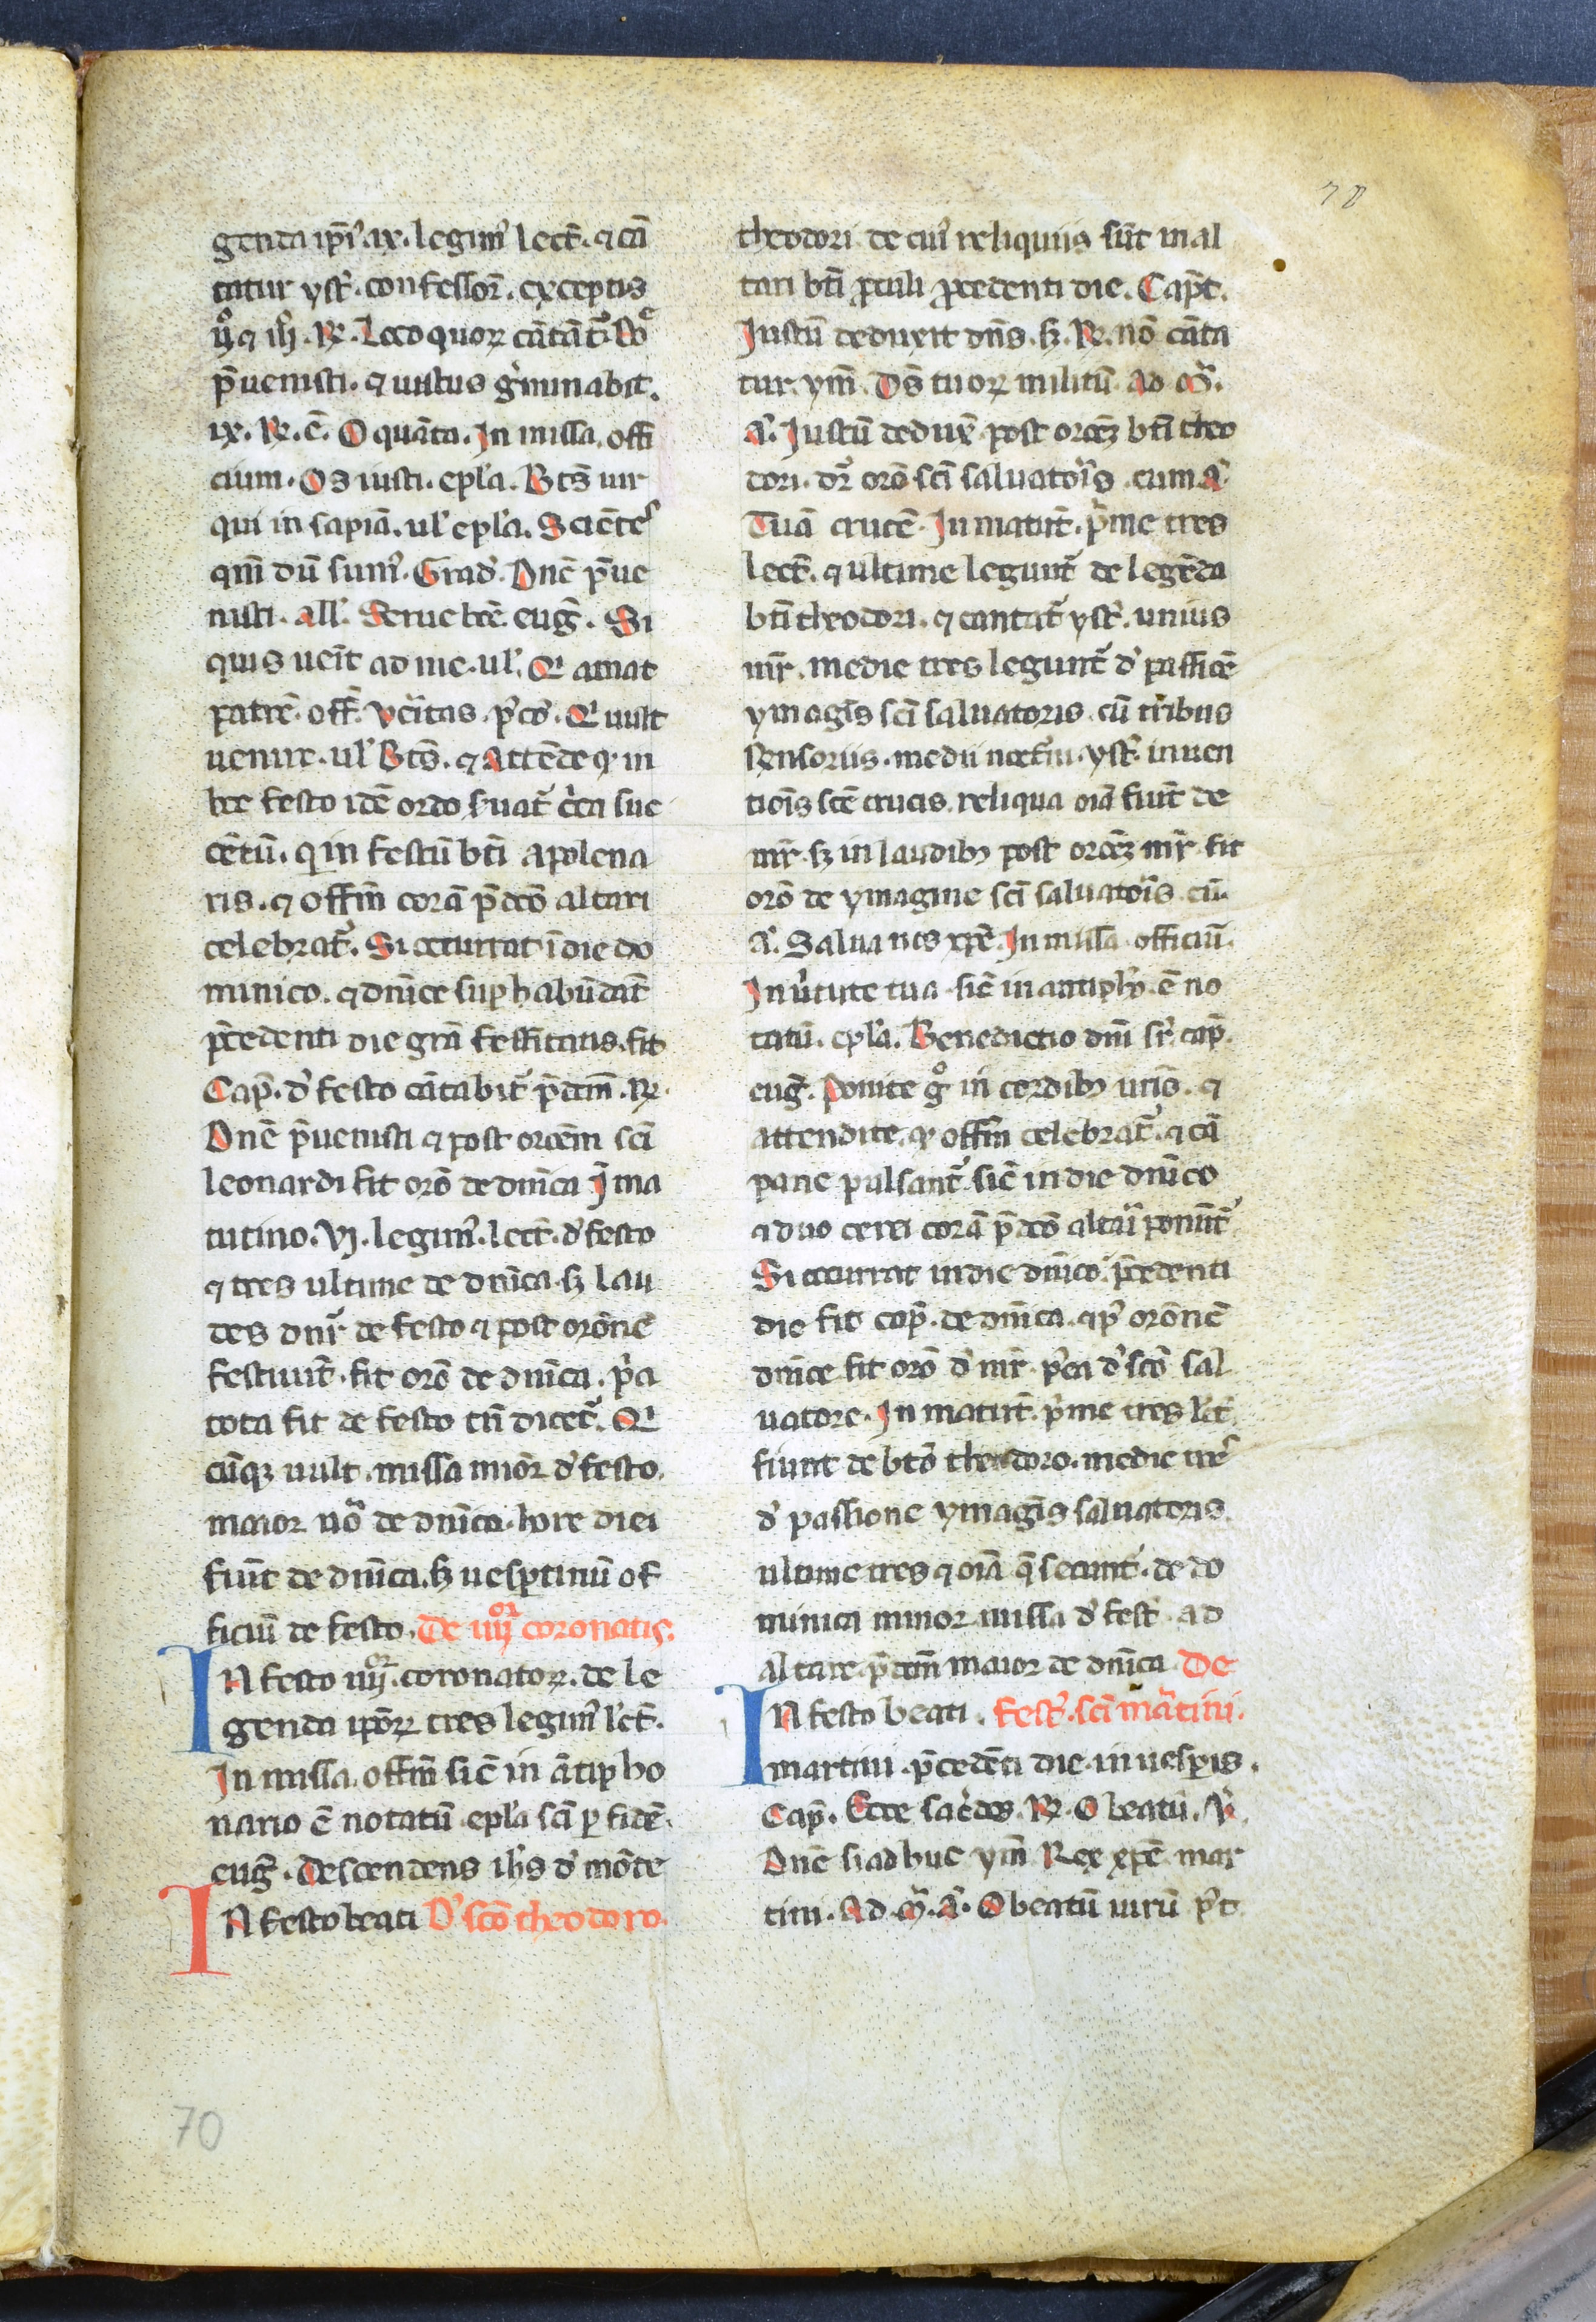 70
genda ip̄i᷒ .ix. legunt᷒ lect̄. ⁊ cā
tatur yst᷒. confessor̄. exceptis
ij᷒ ⁊ iiij᷒. ℟. Loco quoꝝ cātāt᷒. Do᷒
p̄uenisti. ⁊ iustus g᷒minabit.
ix. ℟. ē. O quāta. In missa. offi
cium. Os iusti. epl᷒a. Bt̄s uir
qui in sapīa. ul᷒ epl᷒a. Sciētes᷒
qm̄ dū sum᷒. Grad᷒. Dnē p̄ue
nisti. all᷒. Serue bōe. euḡ. Si
quis uēit ad me. ul᷒. Q᷒i amat
patrē. off̄. Ūeitas. p᷒cō. Q᷒i uult
uenire. ul᷒ Bt̄s. ⁊ Attēde q᷒ in
hoc festo idē ordo s᷒uat᷒ c᷒ca suc
cētū. q᷒ in festū bt̄i apolena
ris. ⁊ offm̄ corā p̄dcō altari
celebrat᷒. Si occurrat ī die do
minico. ⁊ dn̄ice suphabūdāt
p̄cedenti die grā festiitatis. fit
Cap̄. d᷒ festo cātabit᷒ p̄dcm̄. ℟.
Dnē p̄uenisti ⁊ post orōem̄ scī
leonardi fit orō de dn̄ica Ī ma
tutino. vj. legunt᷒. lect̄. d᷒ festo
⁊ tres ultime de dn̄ica. sꝫ lau
des dn̄r᷒ de festo ⁊ post orōnē
festiuit̄. fit orō de dn̄ica. p᷒a
tota fit de festo tn̄ dicet᷒. Q᷒i
cūqꝫ uult. missa mīor d᷒ festo.
maior u᷒o de dn̄ica. hore diei
fiūt de dn̄ica. sꝫ uesptinū of
ficiū de festo. De iiijor coronatis.
IN festo iiijor. coronatoꝝ. de le
genda ip̄oꝝ tres legunt᷒ lc̄t.
In missa. offm̄ sic̄ in ātipho
nario ē notatū. epl᷒a scī ꝑ fidē.
euḡ. Descendens ih̄s d᷒ mōte
IN festo beati D᷒ scō theodoro.
theodori de cui᷒ reliquiis sūt in al
tari bt̄i pauli p̄cedenti die. Capt̄.
Iustū deduxit dn̄s. sꝫ. ℟. nō cāta
tur. ym̄. Ds̄ tuoꝝ militū. ad m᷒.
a᷒. Iustū dedux̄. post orōeꝫ bt̄i theo
dori. dr̄ orō scī saluator᷒is. cum a᷒.
Tuā crucē. In matut̄. p᷒me tres
lect̄. ⁊ ultime legunt᷒ de legēda
bt̄i theodori. ⁊ cantat᷒ yst᷒. unius
mr̄. medie tres legunt᷒ d᷒ passioē
ymagīs scī saluatoris. cū tribus
r̄sensoriis. medii noct᷒ni. yst᷒. inuen
tioīs scē crucis. reliqua oīa fiūt de
mr̄. sꝫ in laudibꝫ post orōeꝫ mr̄. fit
orō de ymagine scī saluatoris. cū.
a᷒. Salua nos xp̄e. In missa. officiū.
In u᷒tute tua. sic̄ in antiph᷒. ē no
tatū. epl᷒a. Benedictio dn̄i sr̄. cap̄.
euḡ. Ponite g᷒ in cordibꝫ uris̄. ⁊
attendite. q᷒ offm̄ celebrat᷒. ⁊ cā
pane pulsant᷒. sic̄ in die dn̄ico
⁊ duo cerei corā p̄dcō altari ponūt᷒
Si occurrat in die dn̄ico. p̄cedenti
die fit cap̄. de dn̄ica. ⁊ p᷒ orōnē
dn̄ice fit orō d᷒ mr̄. p᷒ea d᷒ scō sal
uatore. In matut̄. p᷒me tres lc̄t.
fiunt de btō theodoro. medie tre᷒s
d᷒ passione ymagīs saluatoris.
ultime tres ⁊ oīa q̄ secunt᷒. de do
minica minor missa d᷒ fest᷒. ad
altare p̄dcm̄ maior de dn̄ica. De
IN festo beati. Fest᷒. scī martini.
martini. p̄cedēti die. in uespis.
Cap̄. Ecce sac᷒dos. ℟. O beatū. ℣.
Dnē si adhuc ym̄ Rex xp̄e mar
tini. Ad m᷒. a᷒. O beatū uirū p᷒t
70